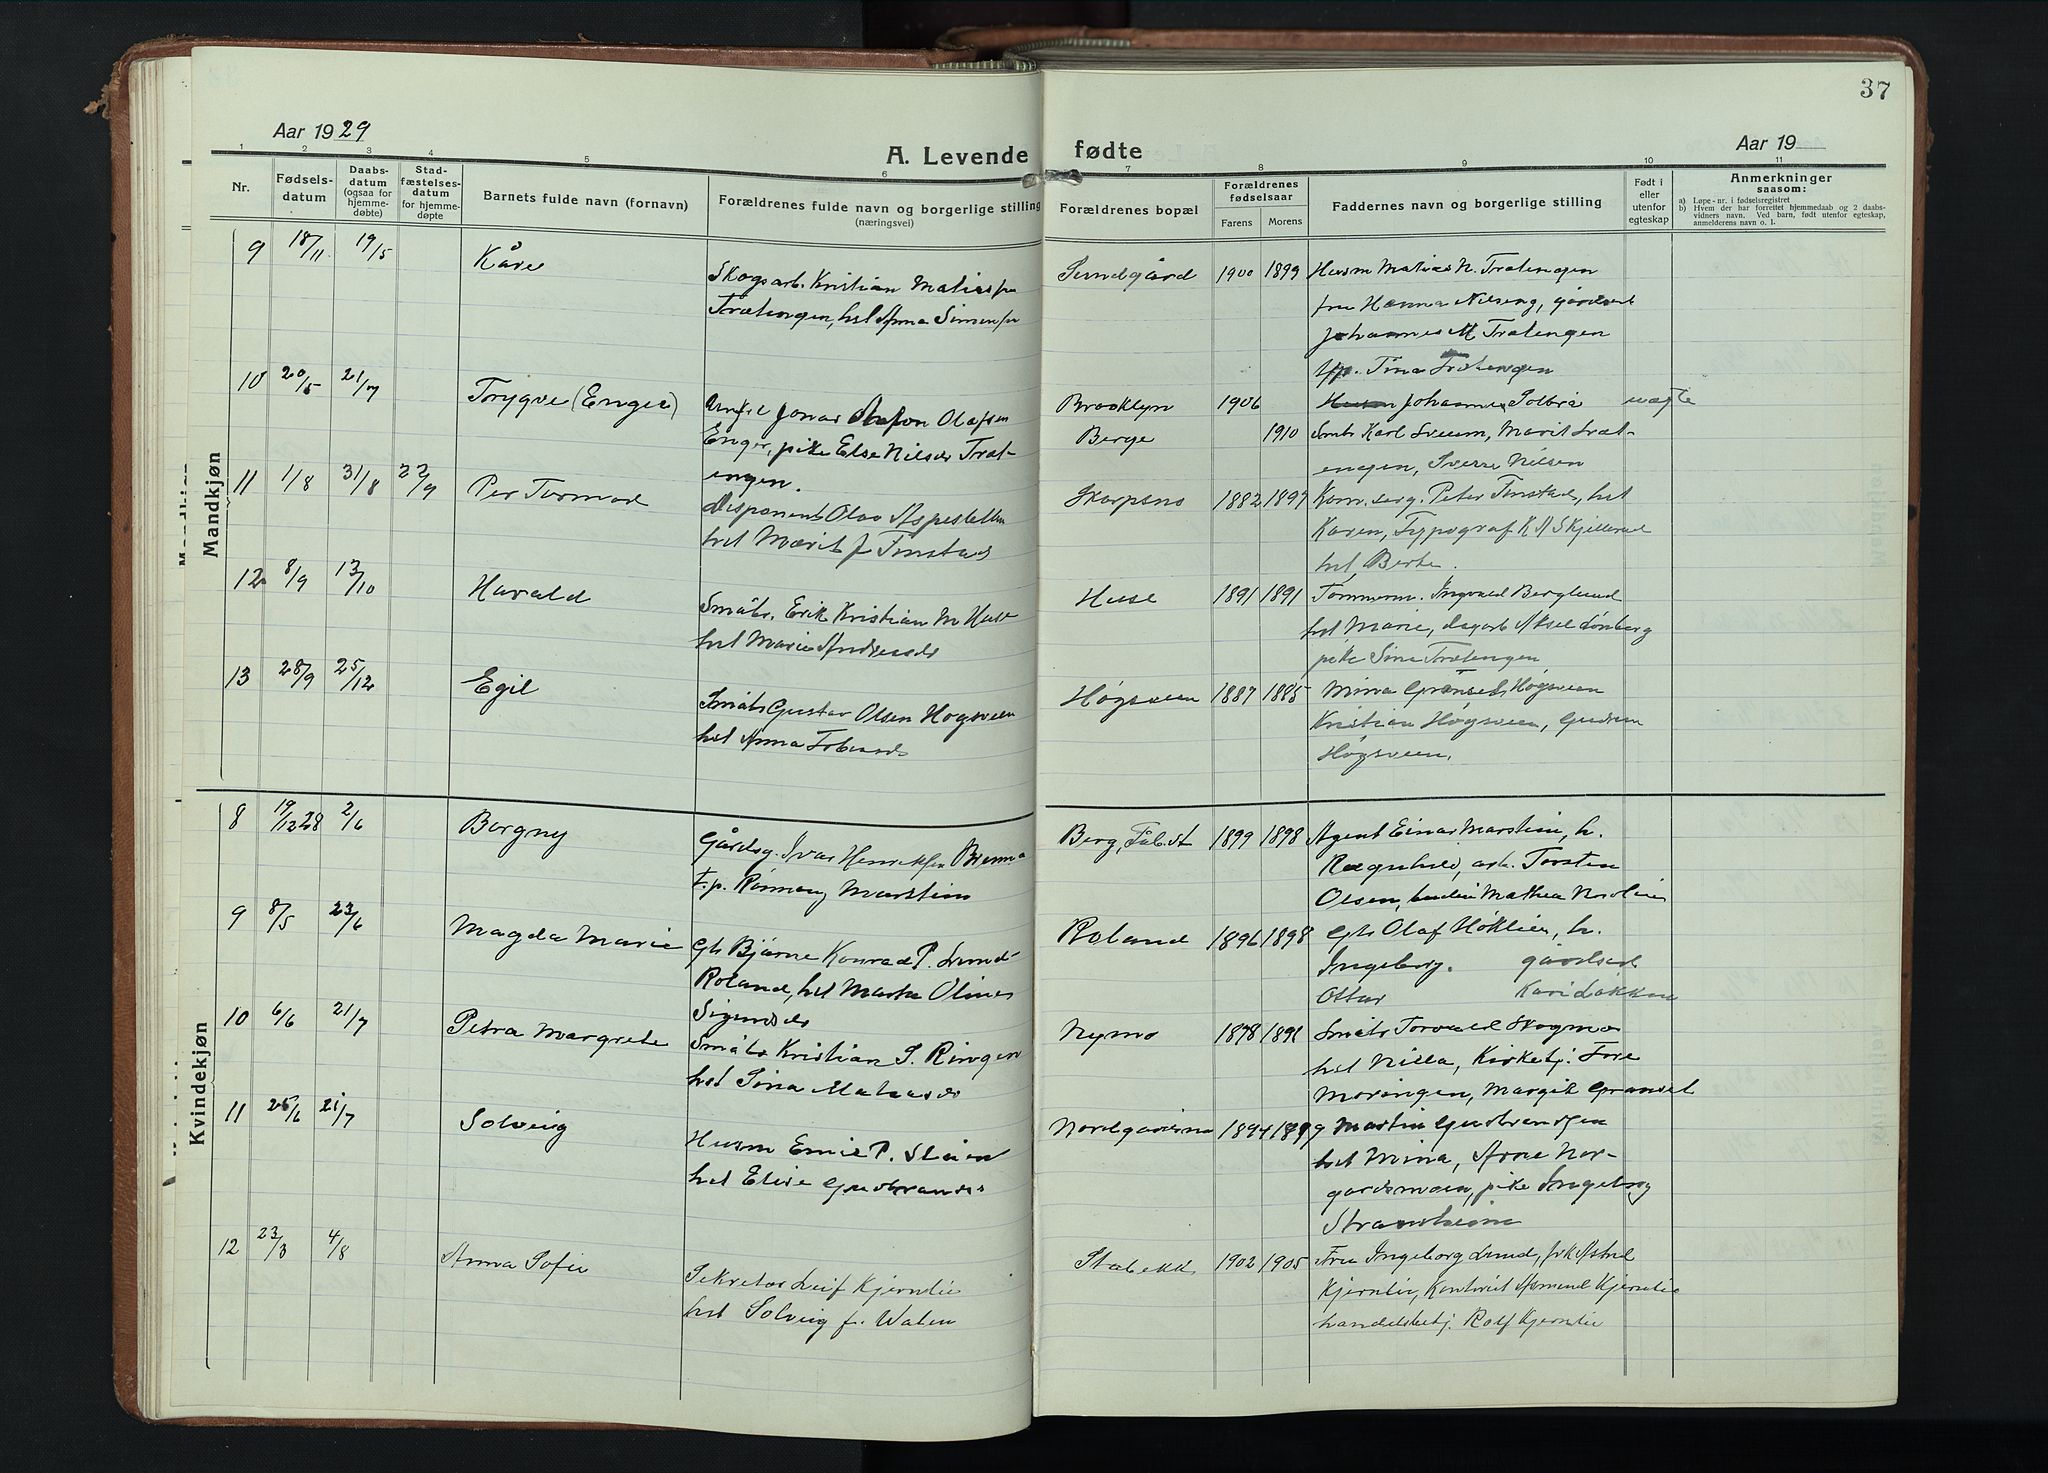 37
Aar 1929
A. Levende fødte
Aar 19
1 2 3 4 5 6 7 8 9 10 11
Nr.
Fødsels-
datum
Daabs-
datum
(ogsaa for
hjemme-
døbte)
Stad-
fæstelses-
datum
for hjemme-
døpte
Barnets fulde navn (fornavn)
Forældrenes fulde navn og borgerlige stilling
(næringsvei)
Forældrenes bopæl
Forældrenes
fødselsaar
Farens Morens
Faddernes navn og borgerlige stilling
Født i
eller
utenfor
egteskap
Anmerkninger
saasom:
a) Løpe-nr. i fødselsregistret
b) Hvem der har forrettet hjemmedaab og 2 daabs-
vidners navn. Ved barn, født utenfor egteskap,
anmelderens navn o. l.
Mandkjøn
9 18/11 19/5 Kåre
Skogsarb. Kristian Matias
Trætengen, hst Anna
Sundgård 1900 1899
Husm Matias N. Trætengen
fru Hanna Nilseng,
Johannes M Trætengen
Tina Trætengen
10 20/5 21/7 Trygve (Enger)
Jonas Olafsen
Enger, pike Else Nilsdr Træt-
engen.
Brooklyn 1906
Berge 1910
Johannes Solbrå uægte
Småbr Karl Sveum, Marit Træt-
engen, Sverre Nilsen
11 1/8 31/8 22/9 Per Tormod
Disponent Olav Aspesletten
hst Marit f Tinstad
Skarpsno 1882 1899
Kom. serg. Peter Tinstad, hst
Karen, Typograf K A Skjellerud
hst Berte.
12 8/9 13/10 Harald
Småbr. Erik Kristian M Huse
hst Marie Andreasdr
Huse 1891 1891
Tømmerm. Ingvald Berglund
hst Marie, dagarb Aksel Lønberg
pike Sina Trætengen
13 28/9 25/12 Egil
Småbr Gustav Olsen Høgsveen
hst Anna
Høgsveen 1887 1885
Mina Grønset, Høgsveen
Kristian Høgsveen, Gudrun
Høgsveen.
Kvindekjøn
8 19/12 28 2/6 Borgny
Gårdsg. Ivar Henriksen Brenna
F.p. Marstein
Berg, 1899 1898
Agent Einar Marstein, h.
Ragnhild, arb. Torsten
Olsen, Mathea
9 8/5 23/6 Magda Marie
Gbr Bjarne Konrad P. Lund-
Roland, hst Marta Oline
Sigurdsdr
Roland 1896 1898
Gbr Olaf Høklien, h.
Ingeborg. gårdsarb
Ottar Kari Løkken
10 6/6 21/7 Petra Margrete
Småbr Kristian S. Ringen
hst Sina Matiasdr
Nymo 1878 1891
Småbr Torvald Skogmo
hst Nilla, Kirketj. Tore
Moringen, Margit Granset
11 25/6 21/7 Solveig
Husm Emil P.
hst Elise Gudbrandsdr
1894 1899
Martin Gudbrandsen
hst Mina, Arne Nor-
gardsmoen, pike Ingeborg
Strandheim
12 23/3 4/8 Anna Sofie
Sekretær Leif Kjernlie
hst Solveig f. Walen
Stabekk 1902 1905
Fru Ingeborg Lund, frk Astrid
Kjernlie, Kontorist Asmund Kjernlie
handelsbetj. Rolf Kjernlie